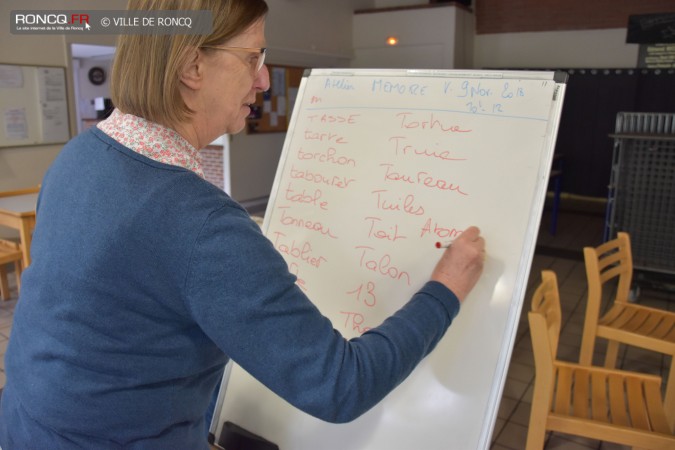 RONCQ.FR
Le site internet de la Ville de Roncq
© VILLE DE RONCQ
Atelier MEMOIRE V. 9 Nov. 2018
10h-12
m
TASSE
Tortue
tarre
Truie
torchon
Taureau
tabouret
Tuiles
table
Toit
Atom
Tonneau
Talon
Tablier
13
RONCQ.FR